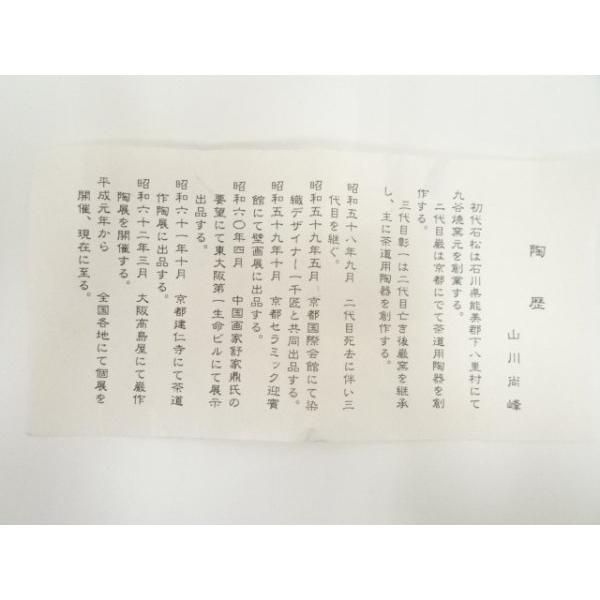 陶歴
山川尚峰
初代石松は石川県能美郡下八里村にて
九谷焼窯元を創業する。
二代目巌は京都にでて茶道用陶器を創
作する。
三代目彰一は二代目亡き後巌窯を継承
し、主に茶道用陶器を創作する。
昭和五十八年九月 二代目死去に伴い三
代目を継ぐ。
昭和五十九年五月 京都国際会館にて染
織デザイナー一千匠と共同出品する。
昭和五十九年十月 京都セラミック迎賓
館にて壁画展に出品する。
昭和六〇年四月 中国画家舒家鼎氏の
要望にて東大阪第一生命ビルにて展示
出品する。
昭和六十一年十月 京都建仁寺にて茶道
作陶展に出品する。
昭和六十二年三月 大阪高島屋にて巌作
陶展を開催する。
平成元年から 全国各地にて個展を
開催、現在に至る。